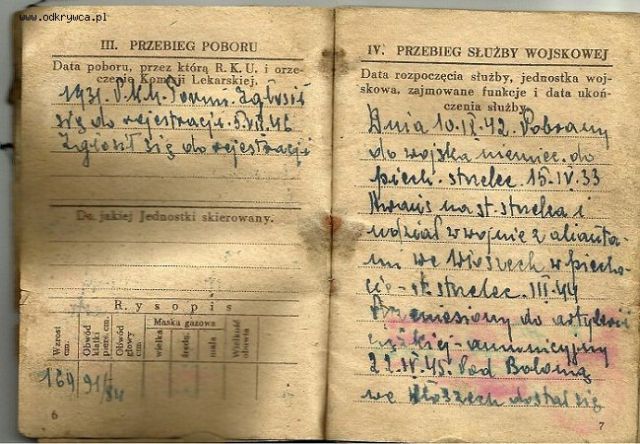 www.odkrywca.pl
III. PRZEBIEG POBORU
Data poboru, przez którą R. K. U. i orze-
czenie Komisji Lekarskiej.
1931. P.K.U. Toruń. Zgłosił
się do rejestracji 5.VII.46
Zgłosił się do rejestracji
Do jakiej Jednostki skierowany.
Rysopis
Wzrost cm.
Obwód klatki piers. cm.
Obwód Głowy cm
Maska gazowa
wielka
średn.
mała
Wielkość obuwia
169 91/84
6
IV. PRZEBIEG SŁUŻBY WOJSKOWEJ
Data rozpoczęcia służby, jednostka woj-
skowa, zajmowane funkcje i data ukoń-
czenia służby.
Dnia 10.IX.42. Pobrany
do wojska niemiec. do
piech. strzelec 15.IV.33
Awans na st. strzelca i
udział w wojnie z alianta-
mi we Włoszech w piecho-
cie - st. strzelec. III.44
Przeniesiony do artylerii
ciężkiej - amunicyjny
22.IV.45. Pod Bolonią
we Włoszech dostał się
7